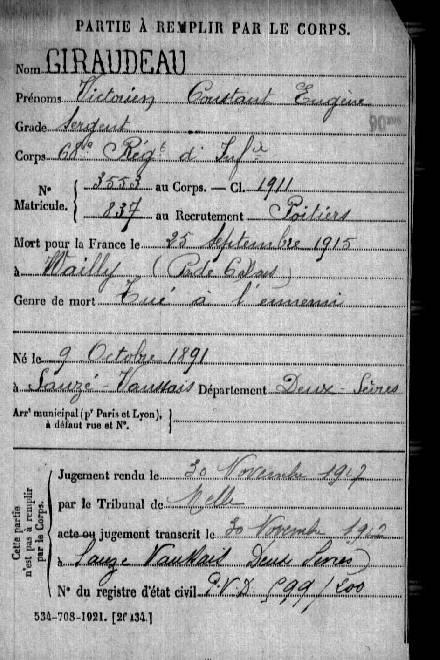 PARTIE À REMPLIR PAR LE CORPS.
Nom GIRAUDEAU
Prénoms Victorien Constant Eugène
Grade Sergent
90
Corps 68e Régt d'Infie
Nos Matricule. { 3553 au Corps. — Cl. 1911
837 au Recrutement Poitiers
Mort pour la France le 25 Septembre 1915
à Mailly (P. de Calais)
Genre de mort Tué à l'ennemi
Né le 9 Octobre 1891
à Sauzé-Vaussais Département Deux-Sèvres
Arrt municipal (pr Paris et Lyon), à défaut rue et No.
Cette partie n'est pas à remplir par le Corps.
Jugement rendu le 30 Novembre 1917
par le Tribunal de Melle
acte ou jugement transcrit le 30 Novembre 1917
à Sauzé Vaussais Deux Sèvres)
No du registre d'état civil
534-708-1921. [26434.]